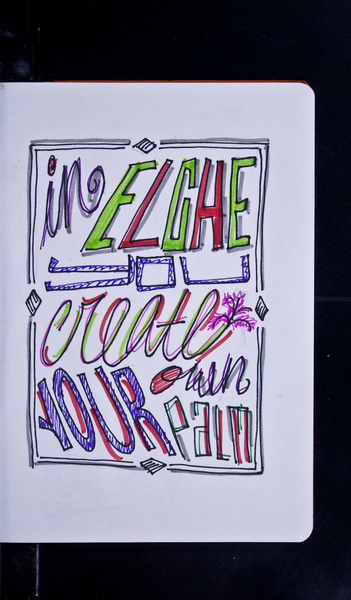 in ELCHE
YOU
create
YOUR own
palm